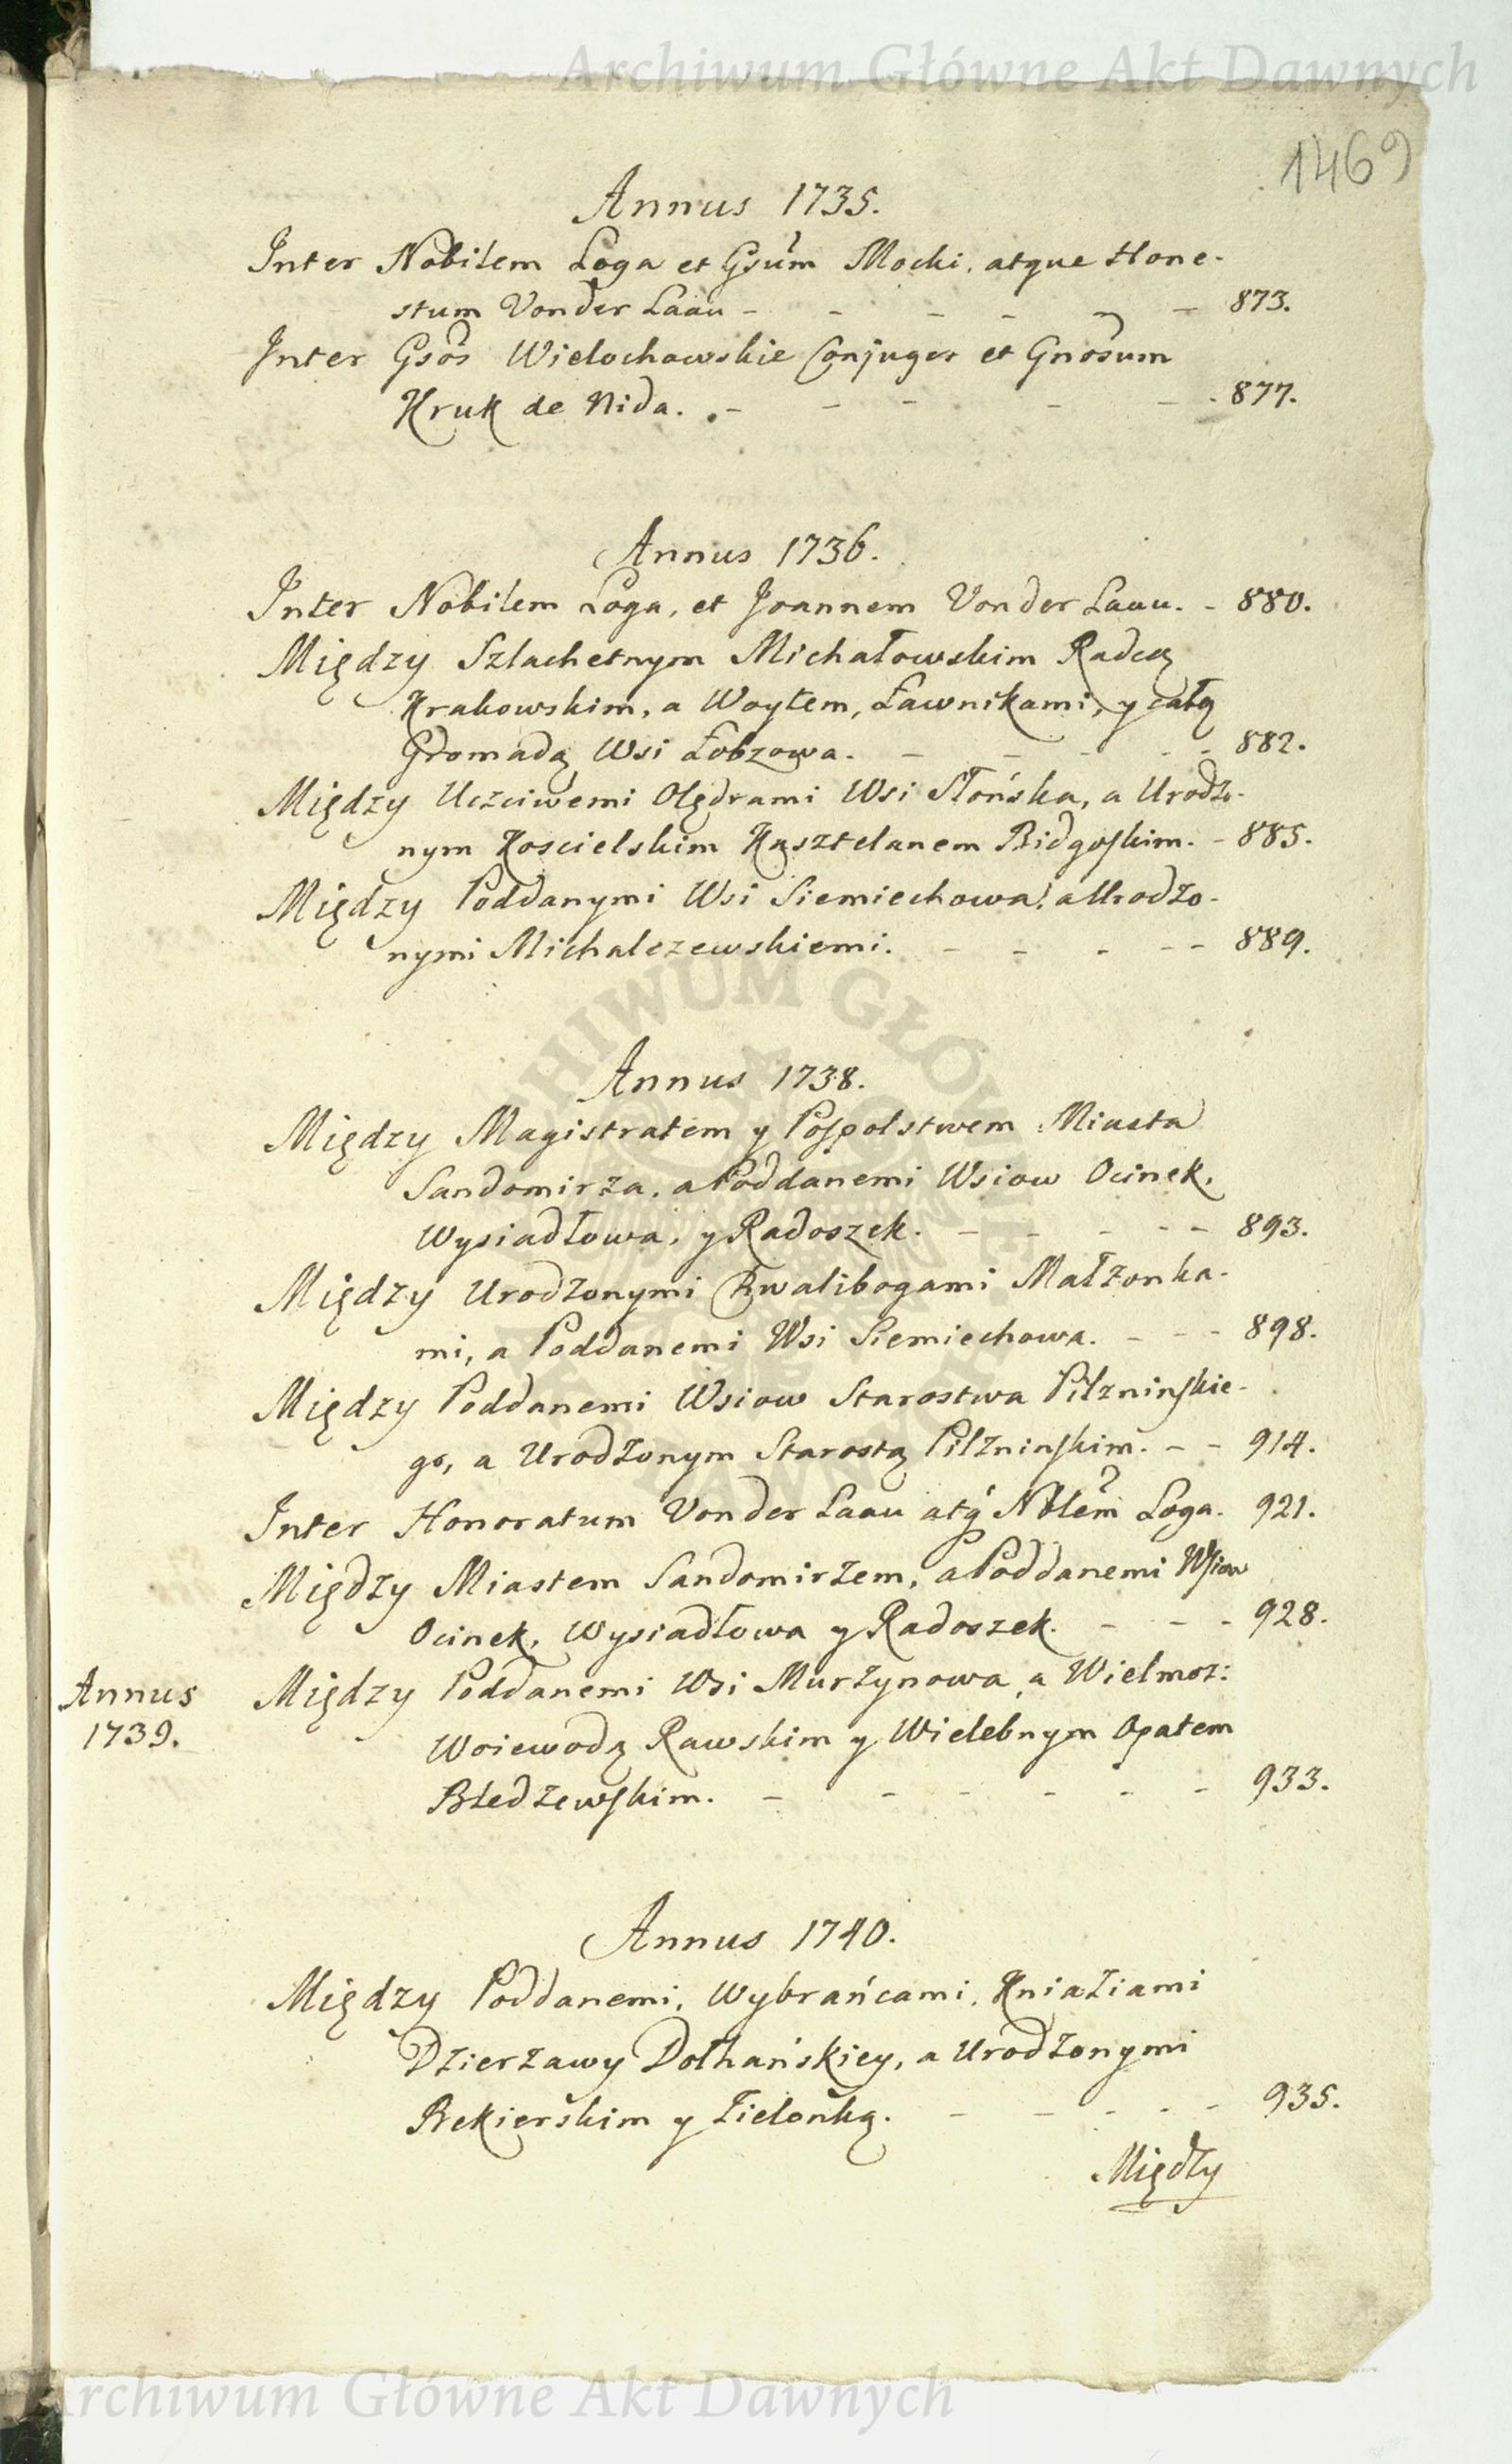 Archiwum Główne Akt Dawnych
1469
Annus 1735.
Inter Nobilem Loga et Gsum Mocki, atque Hone-
stum Vonder Laau - - - - - - 873.
Inter Gsos Wielochowskie Conjuges et Gnosum
Kruk de Nida. - - - - - 877.
Annus 1736.
Inter Nobilem Loga, et Joannem Vonder Laau. - 880.
Między Szlachetnym Michałowskim Radcą
Krakowskim, a Woytem, Ławnikami, y całą
Gromadą Wsi Łobzowa. - - - - - 882.
Między Uczciwemi Olędrami Wsi Słońska, a Urodzo-
nym Koscielskim Kasztelanem Bidgoskim. - 885.
Między Poddanymi Wsi Siemiechowa, a Urodzo-
nymi Michalczewskiemi. - - - - - 889.
Annus 1738.
Między Magistratem y Pospolstwem Miasta
Sandomirza, a Poddanemi Wsiow Ocinek,
Wysiadłowa, y Radoszek. - - - - - 893.
Między Urodzonymi Chwalibogami Małzonka-
mi, a Poddanemi Wsi Siemiechowa. - - - 898.
Między Poddanemi Wsiow Starostwa Pilzninskie-
go, a Urodzonym Starostą Pilzninskim. - - 914.
Inter Honoratum Vonder Laau atq Nblem Loga. 921.
Między Miastem Sandomirzem, a Poddanemi Wsiow
Ocinek, Wysiadłowa y Radoszek. - - - 928.
Annus
1739.
Między Poddanemi Wsi Murzynowa, a Wielmoz:
Woiewodą Rawskim y Wielebnym Opatem
Bledzewskim. - - - - - - 933.
Annus 1740.
Między Poddanemi, Wybrańcami, Kniaziami
Dzierzawy Dołhańskiey, a Urodzonymi
Bekierskim y Zielonką. - - - - - 935.
Między
ARCHIWUM GŁÓWNE AKT DAWNYCH
Archiwum Główne Akt Dawnych